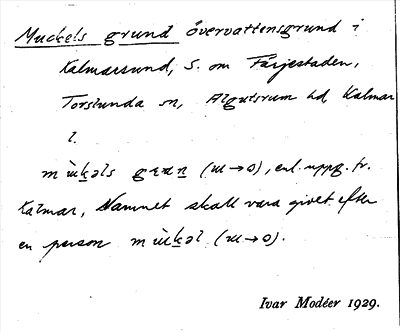 Muckels grund övervattensgrund i
Kalmarsund, S. om Färjestaden,
Torslunda sn, Algutsrum hd, Kalmar
l.
mùkəls grɛnn (u→o), enl. uppg. fr.
Kalmar, Namnet skall vara givet efter
en person mùkəl (u→o).
Ivar Modéer 1929.